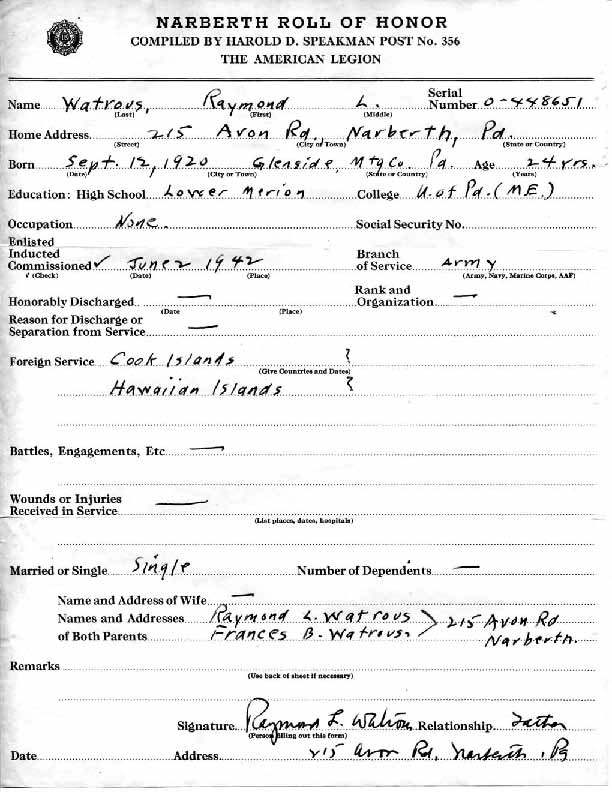 NARBERTH ROLL OF HONOR
COMPILED BY HAROLD D. SPEAKMAN POST No. 356
THE AMERICAN LEGION
Name Watrous, Raymond L. Serial Number 0-448651
(Last) (First) (Middle)
Home Address 215 Avon Rd, Narberth, Pa.
(Street) (City or Town) (State or Country)
Born Sept. 12, 1920 Glenside, Mtg Co. Pa. Age 24 yrs.
(Date) (City or Town) (State or Country) (Years)
Education: High School Lower Merion College U. of Pa. (M.E.)
Occupation None. Social Security No.
Enlisted
Inducted Branch
Commissioned ✓ June 2 1942 of Service Army
√ (Check) (Date) (Place) (Army, Navy, Marine Corps, AAF)
Rank and
Honorably Discharged — Organization —
(Date (Place)
Reason for Discharge or
Separation from Service —
Foreign Service Cook Islands ?
(Give Countries and Dates)
Hawaiian Islands ?
Battles, Engagements, Etc —
Wounds or Injuries —
Received in Service
(List places, dates, hospitals)
Married or Single Single Number of Dependents —
Name and Address of Wife —
Names and Addresses Raymond L. Watrous > 215 Avon Rd
of Both Parents Frances B. Watrous. Narberth.
Remarks
(Use back of sheet if necessary)
Signature Raymond L. Watrous Relationship Father
(Person filling out this form)
Date Address 215 Avon Rd, Narberth, Pa